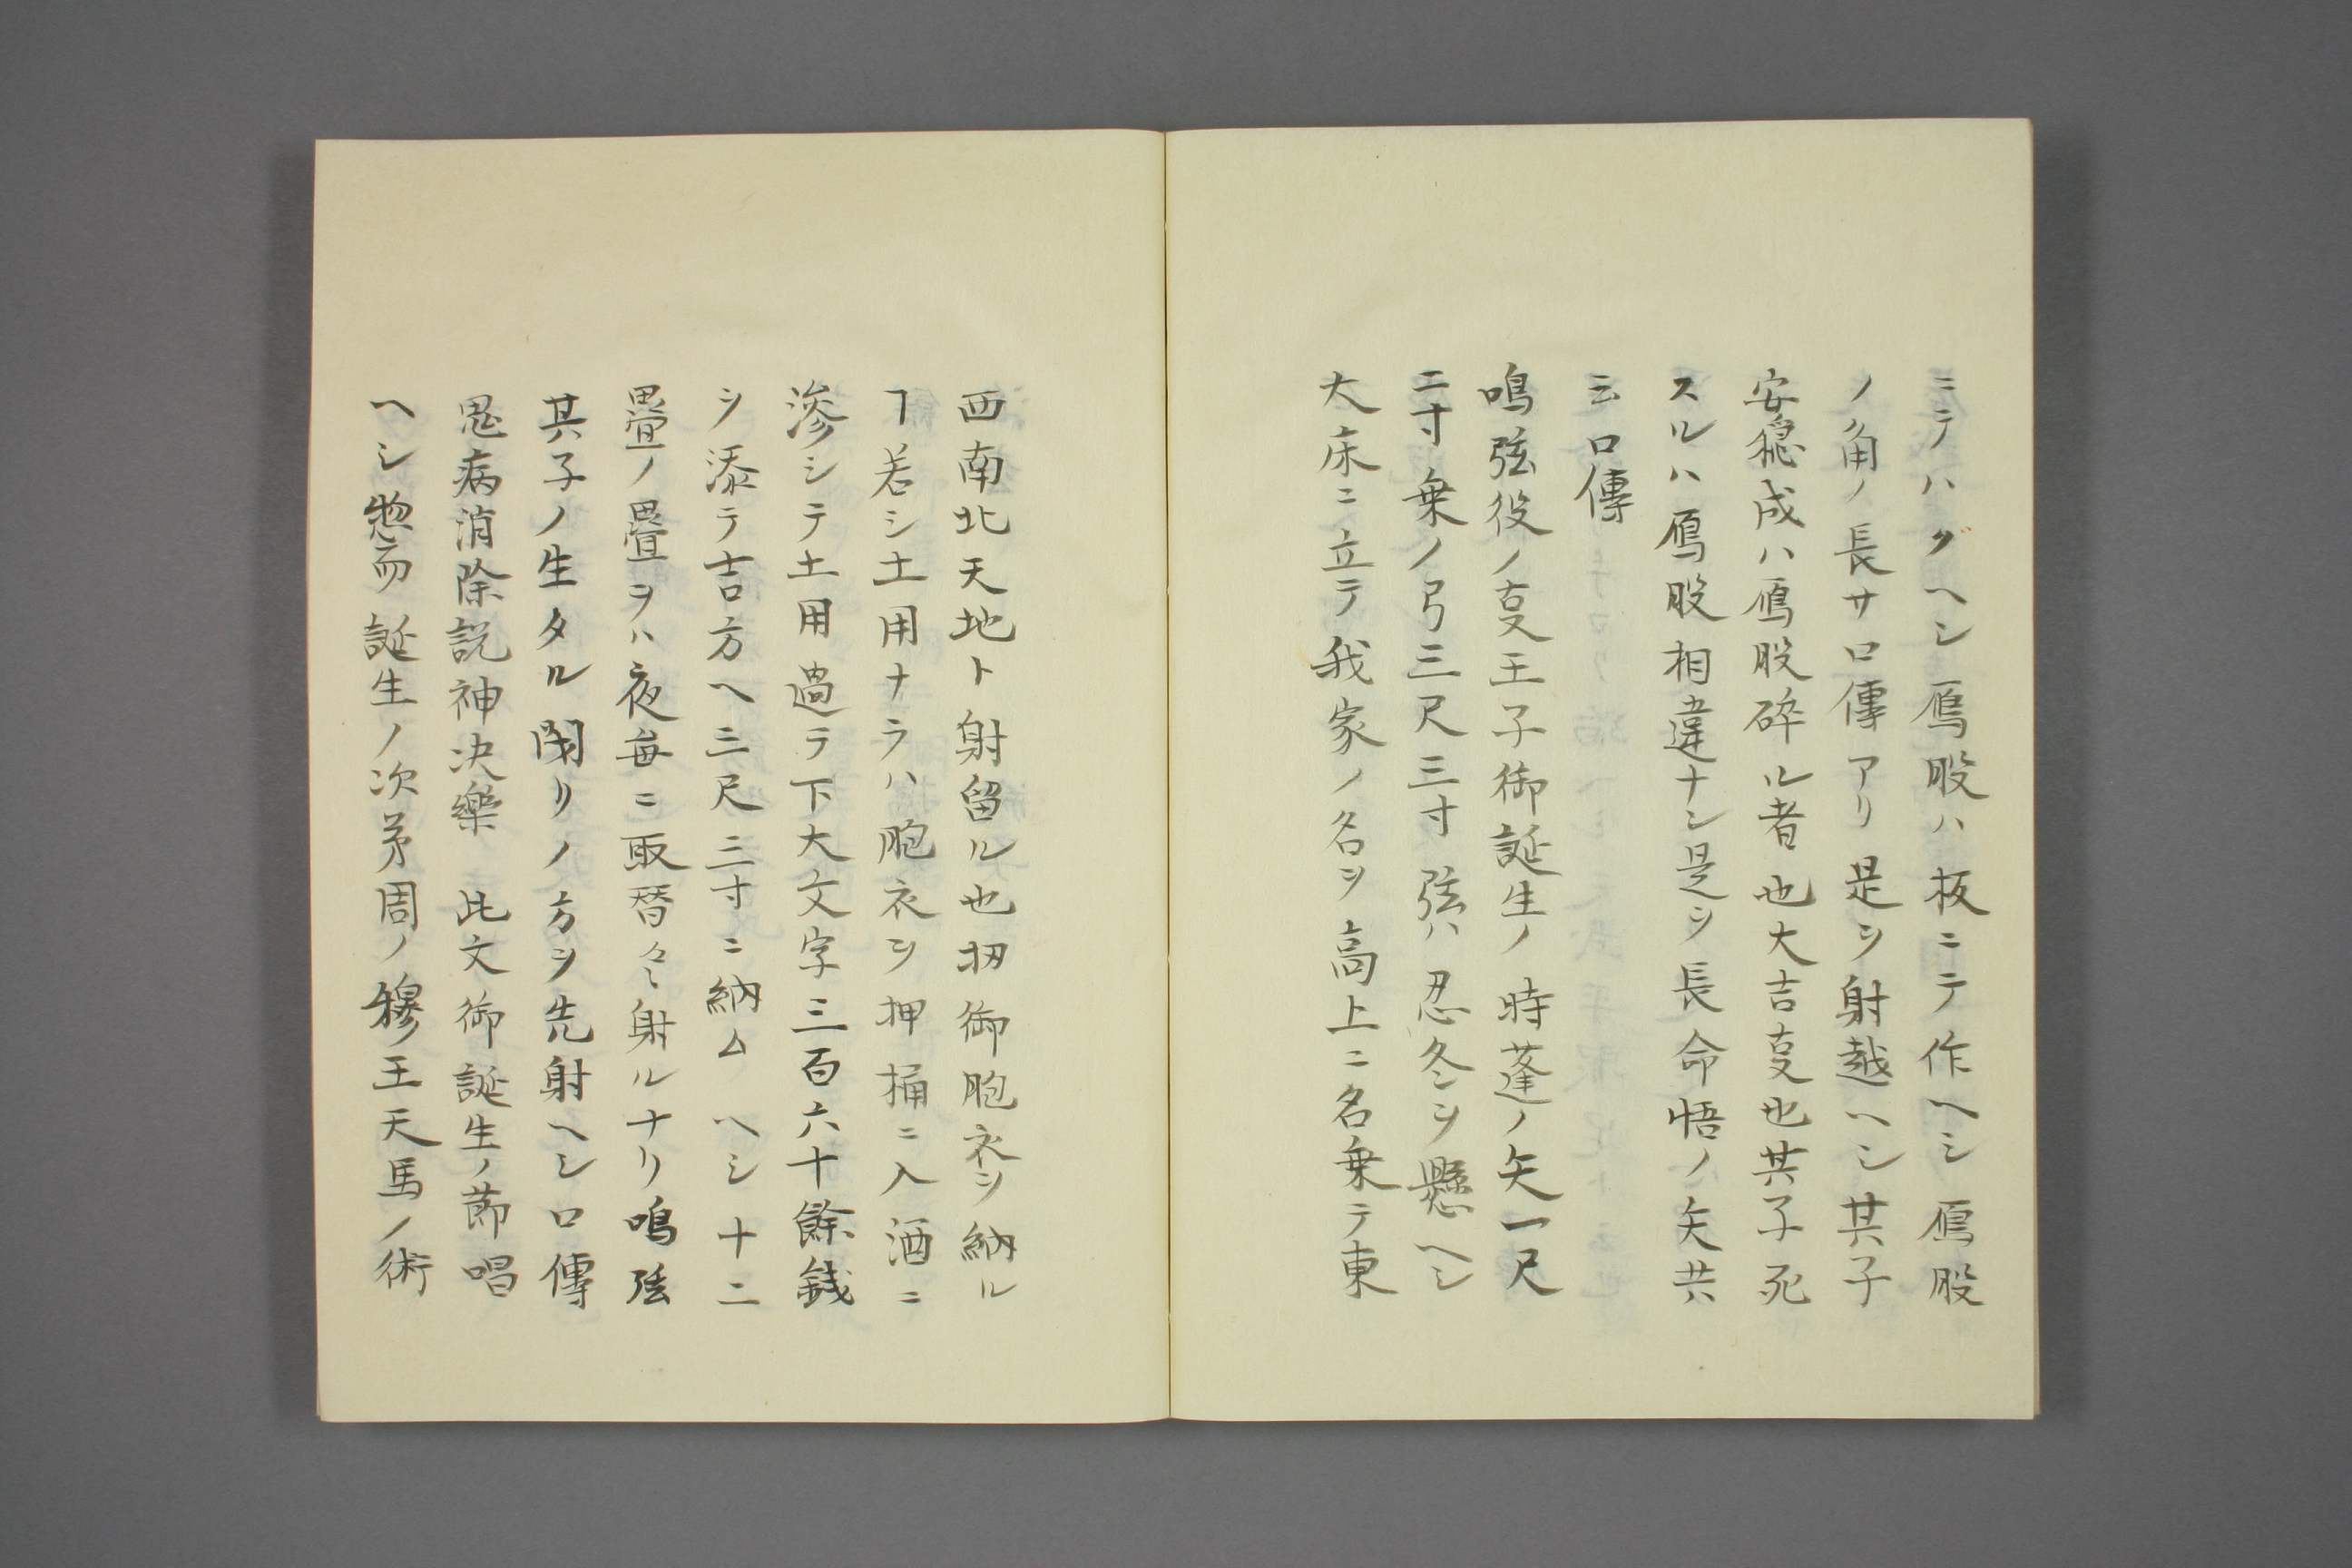 ニテハグヘシ鴈股ハ板ニテ作ヘシ鴈股
ノ角ノ長サ口傳アリ是ヲ射越ヘシ其子
安穏成ハ鴈股碎ル者也大吉叓也其子死
スルハ鴈股相違ナシ是ヲ長命悟ノ矢共
云口傳
鳴弦役ノ叓王子御誕生ノ時蓬ノ矢一尺
二寸乗ノ弓三尺三寸弦ハ忍冬ヲ懸ヘシ
大床ニ立テ我家ノ名ヲ高上ニ名乗テ東
西南北天地ト射留ル也扨御胞衣ヲ納ル
ヿ若シ土用ナラハ胞衣ヲ押桶ニ入酒ニ
滲シテ土用過テ下大文字三百六十餘銭
ヲ添テ吉方ヘ三尺三寸ニ納ムヘシ十二
疊ノ疊ヲハ夜毎ニ取替々々射ルナリ鳴弦
其子ノ生タル閇リノ方ヲ先射ヘシ口傳
鬼病消除説神決樂 此文御誕生ノ節唱
ヘシ惣而誕生ノ次㐧周ノ穆王天馬ノ術